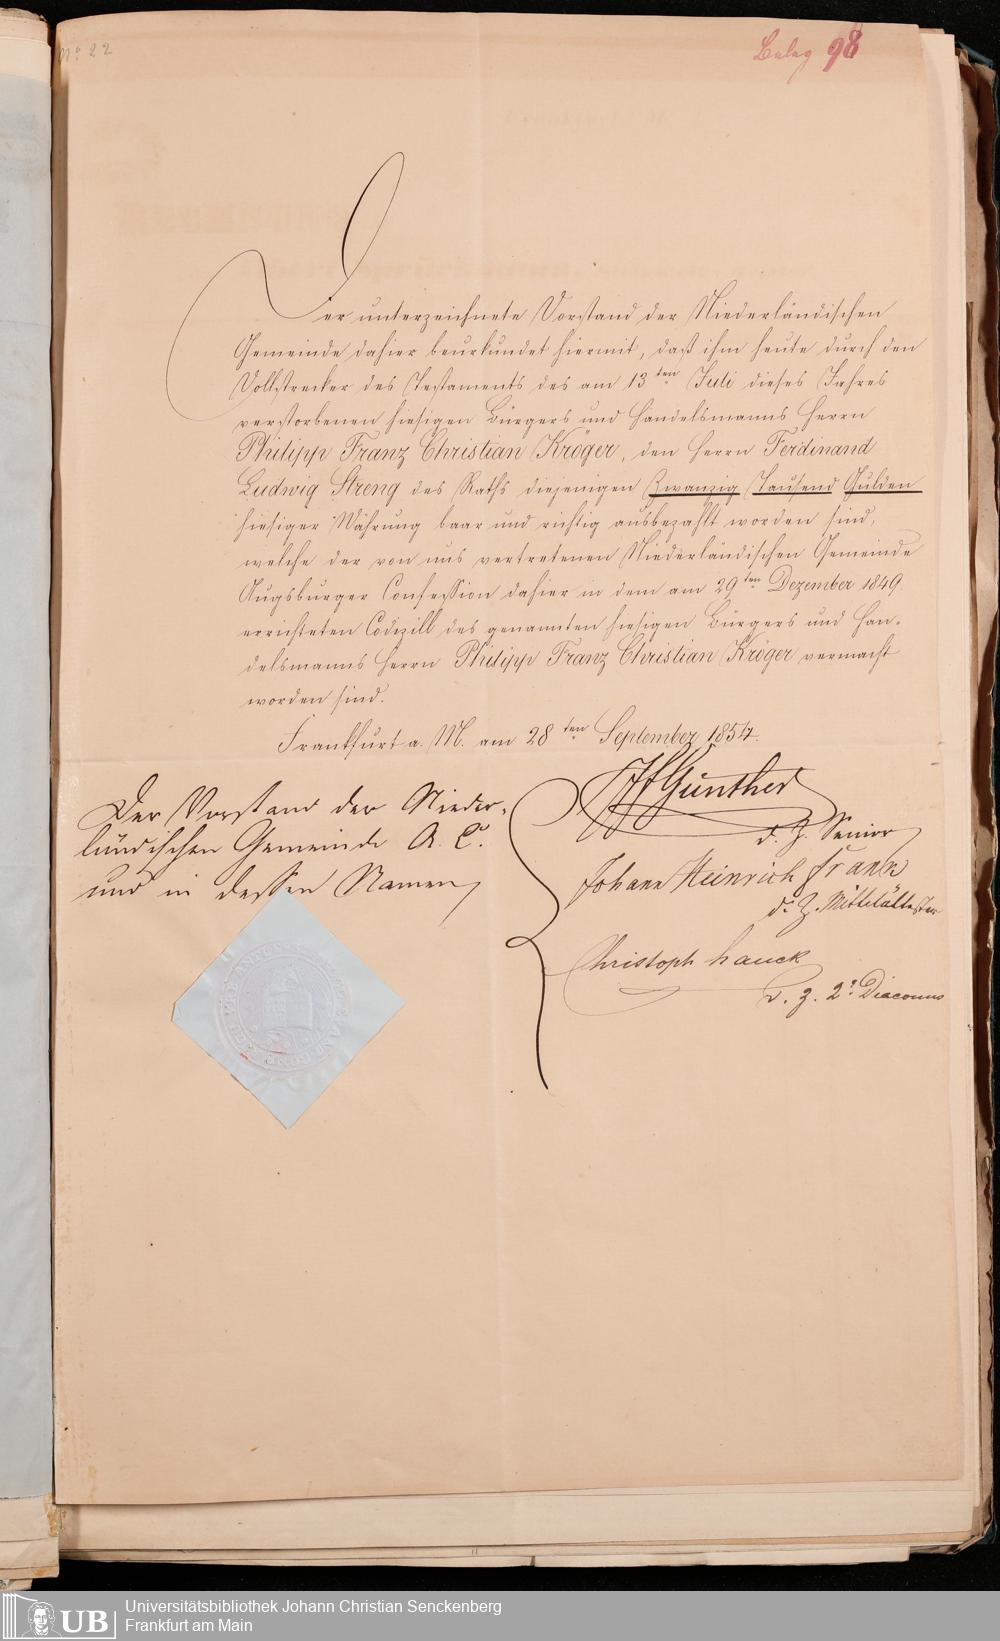 No 22
Beleg 98
Der unterzeichnete Vorstand der Niederländischen
Gemeinde dahier beurkundet hiermit, daß ihm heute durch den
Vollstrecker des Testaments des am 13ten Juli dieses Jahres
verstorbenen hiesigen Bürgers und Handelsmanns Herrn
Philipp Franz Christian Kröger, den Herrn Ferdinand
Ludwig Streng des Raths diejenigen Zwanzig Tausend Gulden
hiesiger Währung baar und richtig ausbezahlt worden sind,
welche der von uns vertretenen Niederländischen Gemeinde
Augsburger Confession dahier in dem am 29ten Dezember 1849.
errichteten Codizill des genannten hiesigen Bürgers und Han-
delsmanns Herrn Philipp Franz Christian Kröger vermacht
worden sind.
Frankfurt a. M. am 28ten September 1854.
Der Vorstand der Nieder-
ländischen Gemeinde A. C.
und in dessen Namen
Günther
d. Z. Senior
Johann Heinrich Frank
d. Z. Mittelältester
Christoph Hauck
d. z. 2r Diaconus
UB
Universitätsbibliothek Johann Christian Senckenberg
Frankfurt am Main